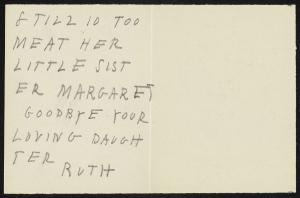 & TILL 10 TOO
MEAT HER
LITTLE SIST
ER MARGARET
GOODBYE YOUR
LOVING DAUGH
TER
RUTH